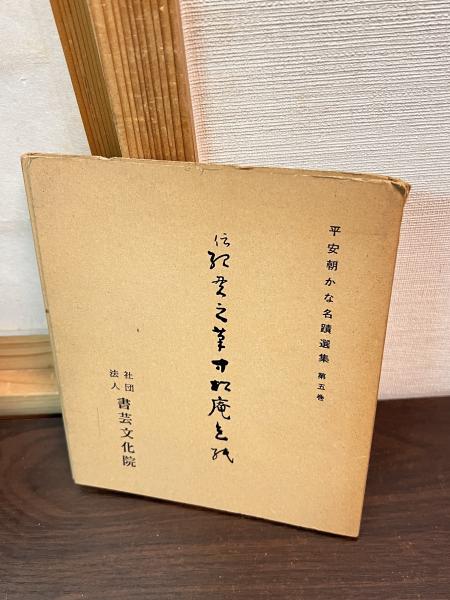 平安朝かな名蹟選集 第五巻
伝紀貫之筆寸松庵色紙
社団法人 書芸文化院